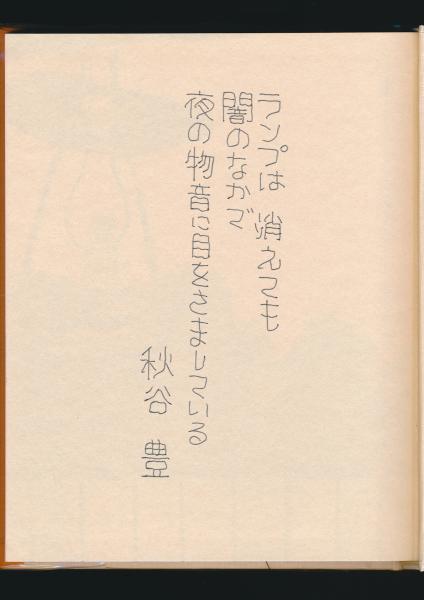 ランプは 消えても
闇のなかで
夜の物音に目をさましている
秋谷 豊